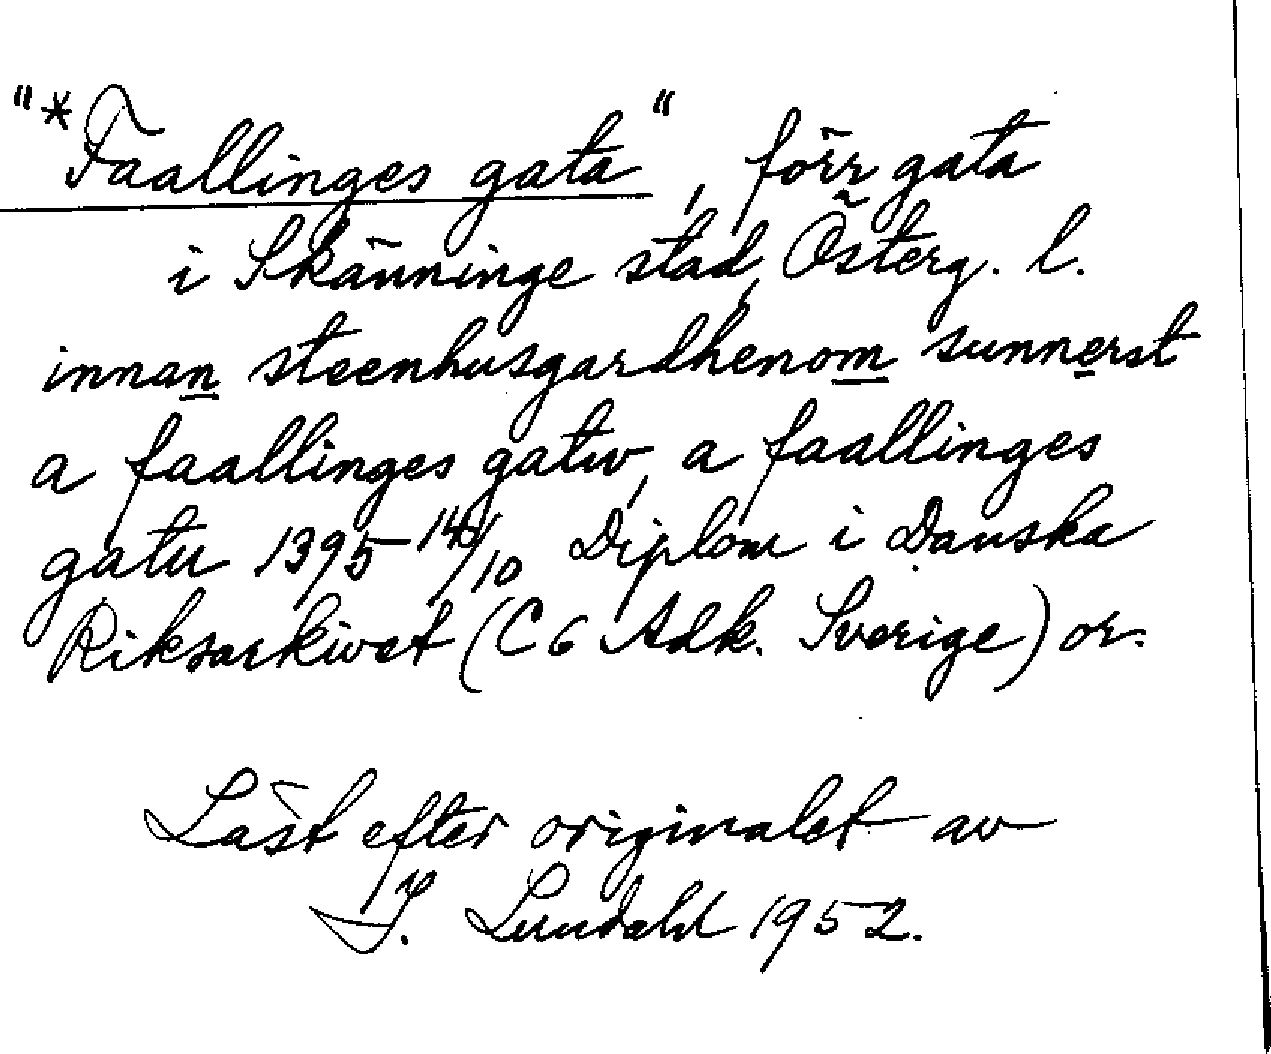 "*Faallinges gata", förr gata
i Skänninge stad, Österg. l.
innan steenhusgardhenom sunnerst
a faallinges gatw, a faallinges
gatu 1395 14/10 Diplom i Danska
Riksarkivet (C6 Adk. Sverige) or.
Läst efter originalet av
I. Lundahl 1952.